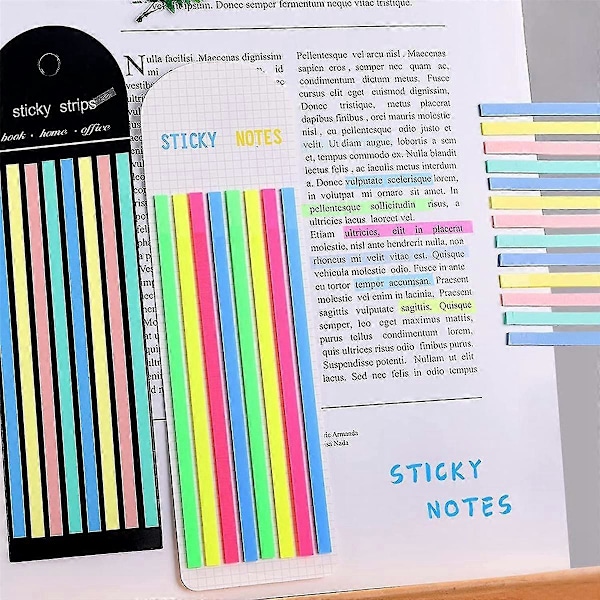 sticky strips
book · home · office
STICKY NOTES
Nulla facilisi. Maecenas dignissim
Pellentesque vel arcu nisl. Maecenas
sapien eros, semper nec quam ac,
condimentum dictum metus. Fusce
cursus elit eget euismod dignissim,
Donec tristique, metus placerat
dapibus finibus, orci mauris molestie
nisl, eu pellentesque odio justo et
velit. Ut diam augue, lobortis a sem
et, tempus commodo ex. Nulla blandit
lectus felis, ac iaculis metus interdum
a. Donec vulputate scelerisque lorem,
in volutpat mi ornare sit amet. In
pellentesque sollicitudin risus, a
ultricies lacus laoreet vel.
Etiam ultricies, elit in placerat
molestie, nisl ante hendrerit nulla, non
rhoncus mi velit vitae est. Quisque
vehicula molestie odio. Fusce in ante
eu tortor tempor accumsan. Praesent
molestie vel enim in lacinia. Praesent
sagittis vulputate sagittis. Quisque
semper, leo eget maximus mattis,
purus tellus condimentum lorem,
quis ultrices risus odio finibus purus.
Suspendisse potenti. Nullam ut elit
lacus. Sed nec felis in odio tempus
Armanda
Nada
STICKY
NOTES